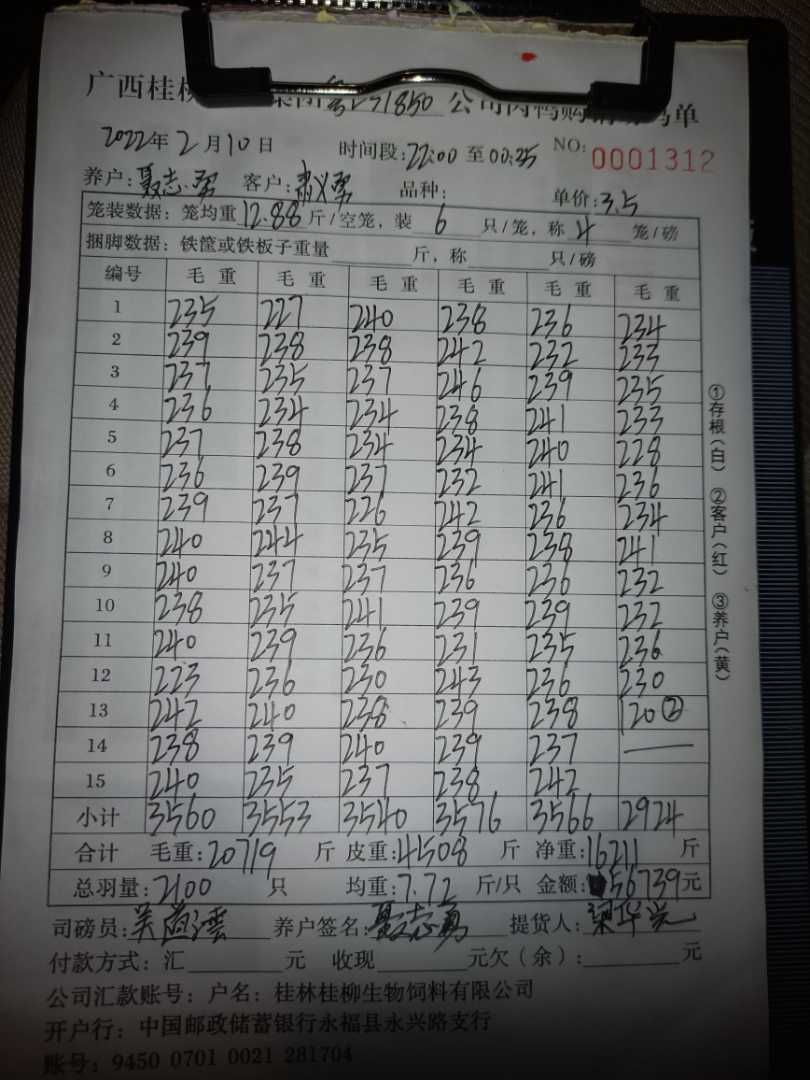 广西桂柳 集团 51850 公司肉鸭购销 磅单
2022年2月10日 时间段:22:00至00:35 NO: 0001312
养户:聂志勇 客户: 品种: 单价:3.5
笼装数据:笼均重12.88斤/空笼,装6只/笼,称4笼/磅
捆脚数据:铁筐或铁板子重量 斤,称 只/磅
编号 毛重 毛重 毛重 毛重 毛重 毛重
1 235 227 240 238 236 234
2 239 238 238 242 232 233
3 237 235 237 246 239 235
4 236 234 234 238 241 233
5 237 238 234 234 240 228
6 236 239 237 232 241 236
7 239 237 226 242 236 234
8 240 244 235 239 238 241
9 240 237 237 236 236 232
10 238 235 241 239 239 232
11 240 239 236 231 235 236
12 223 236 230 243 236 230
13 242 240 238 239 238 120②
14 238 239 240 239 237 —
15 240 235 237 238 242
小计 3560 3553 3540 3576 3566 2924
合计 毛重:20719斤 皮重:4508斤 净重:16211斤
总羽量:2100只 均重:7.72斤/只 金额:56739元
司磅员: 养户签名:聂志勇 提货人:梁华光
付款方式:汇 元 收现 元欠(余): 元
公司汇款账号:户名:桂林桂柳生物饲料有限公司
开户行:中国邮政储蓄银行永福县永兴路支行
账号:9450 0701 0021 281704
①存根(白) ②客户(红) ③养户(黄)